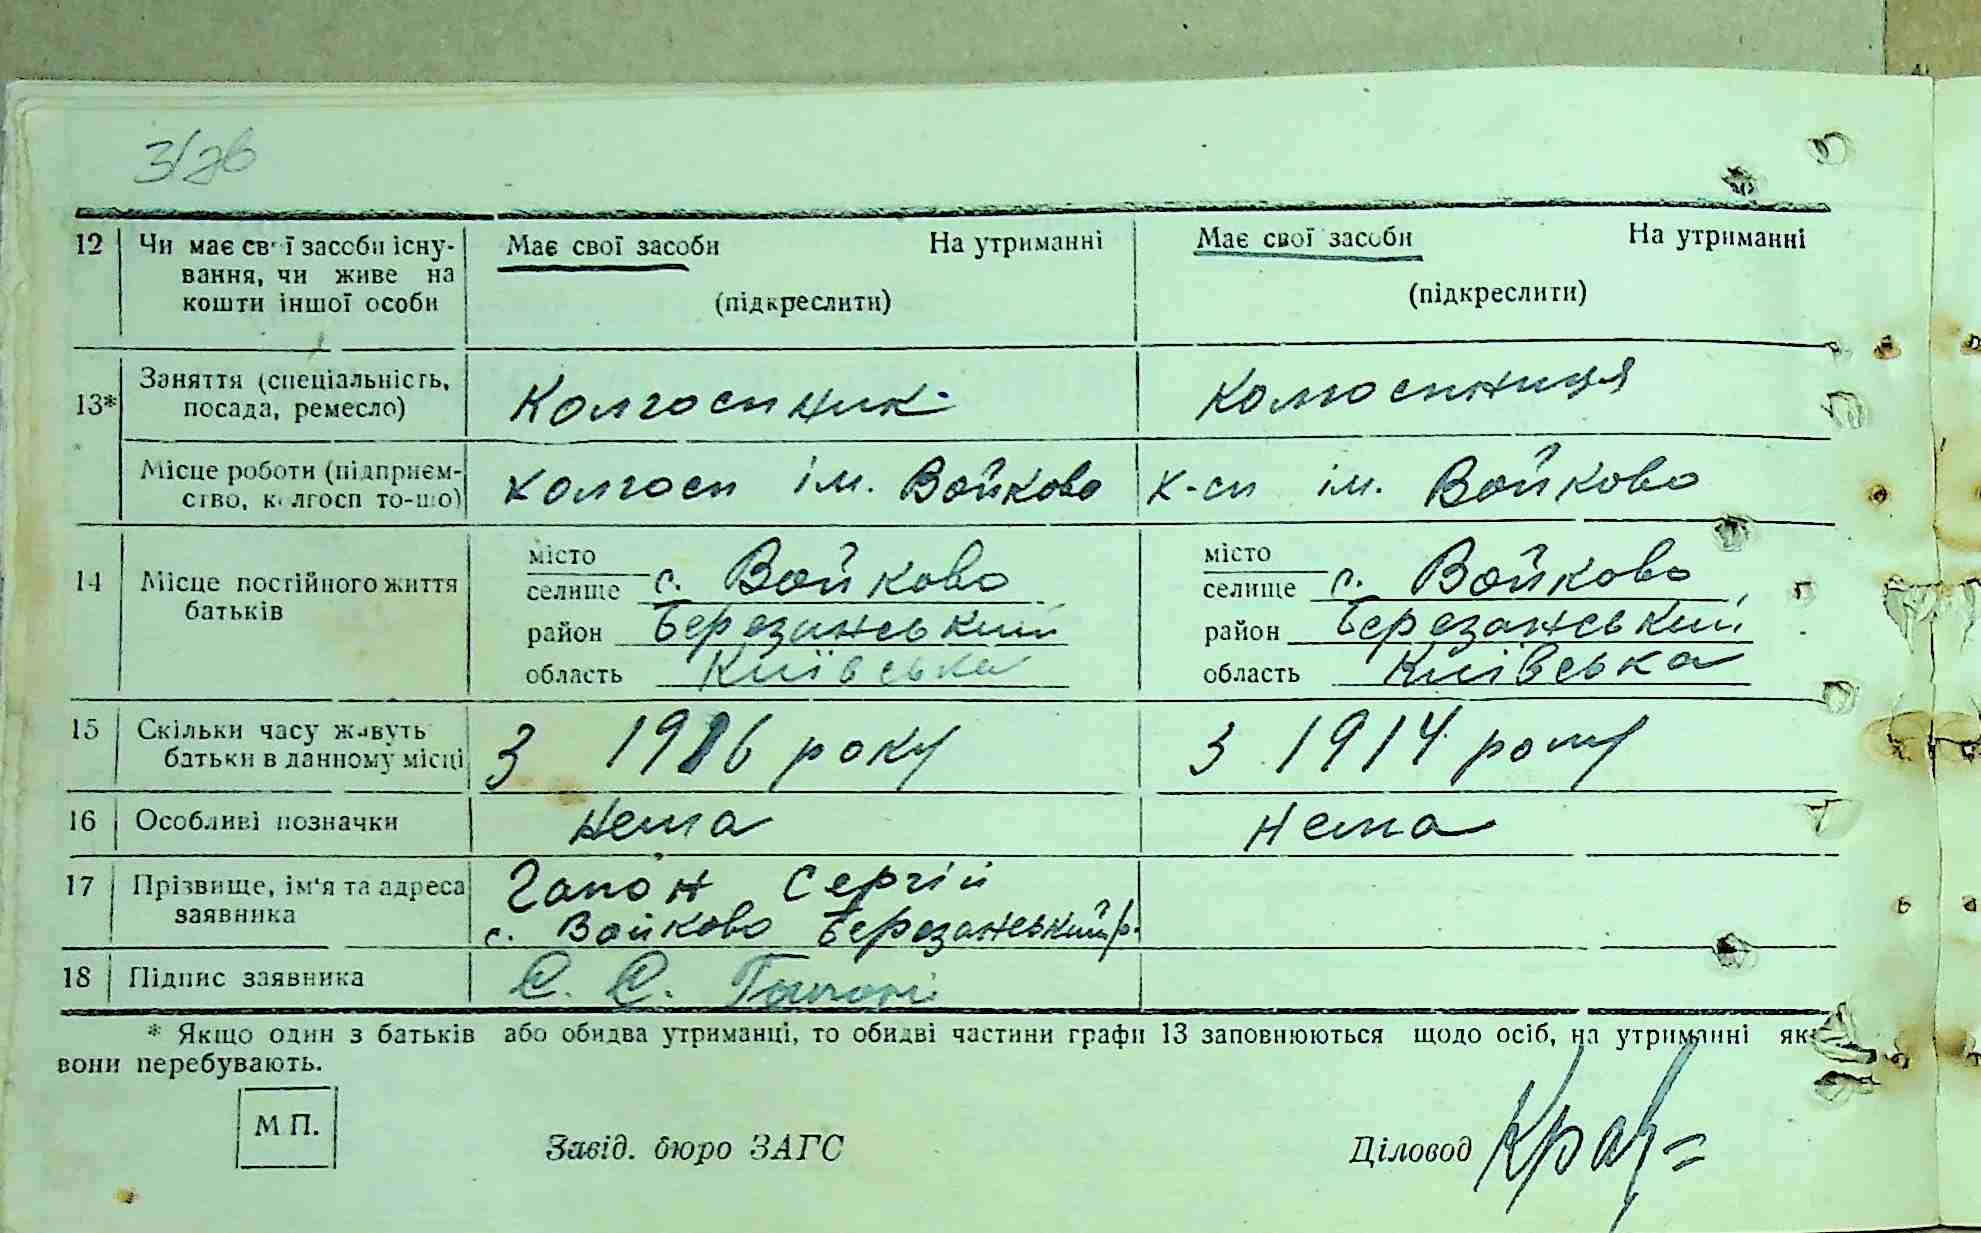 12 Чи має свої засоби існу- Має свої засоби На утриманні Має свої засоби На утриманні
вання, чи живе на
кошти іншої особи (підкреслити) (підкреслити)
13* Заняття (спеціальність, посада, ремесло) Колгоспник Колгоспниця
Місце роботи (підприєм- колгосп ім. Войково к-сп ім. Войково
ство, колгосп то-що)
14 Місце постійного життя батьків
місто місто
селище с. Войково селище с. Войково
район Березанський район Березанський
область Київська область Київська
15 Скільки часу живуть з року з 1914 року
батьки в данному місці
16 Особливі позначки нема нема
17 Прізвище, ім'я та адреса Гапон Сергій
заявника с. Войково Березанський р.
18 Підпис заявника С. С. Гапон
* Якщо один з батьків або обидва утриманці, то обидві частини графи 13 заповнюються щодо осіб, на утриманні як
вони перебувають.
М П.
Завід. бюро ЗАГС Діловод